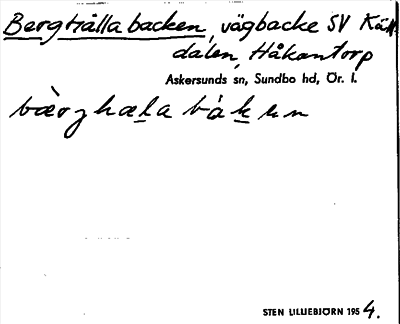 Berghälla backen, vägbacke SV Käll-
dalen, Håkantorp
Askersunds sn, Sundbo hd, Ör. l.
bærghæla baken
STEN LILLIEBJÖRN 1954.